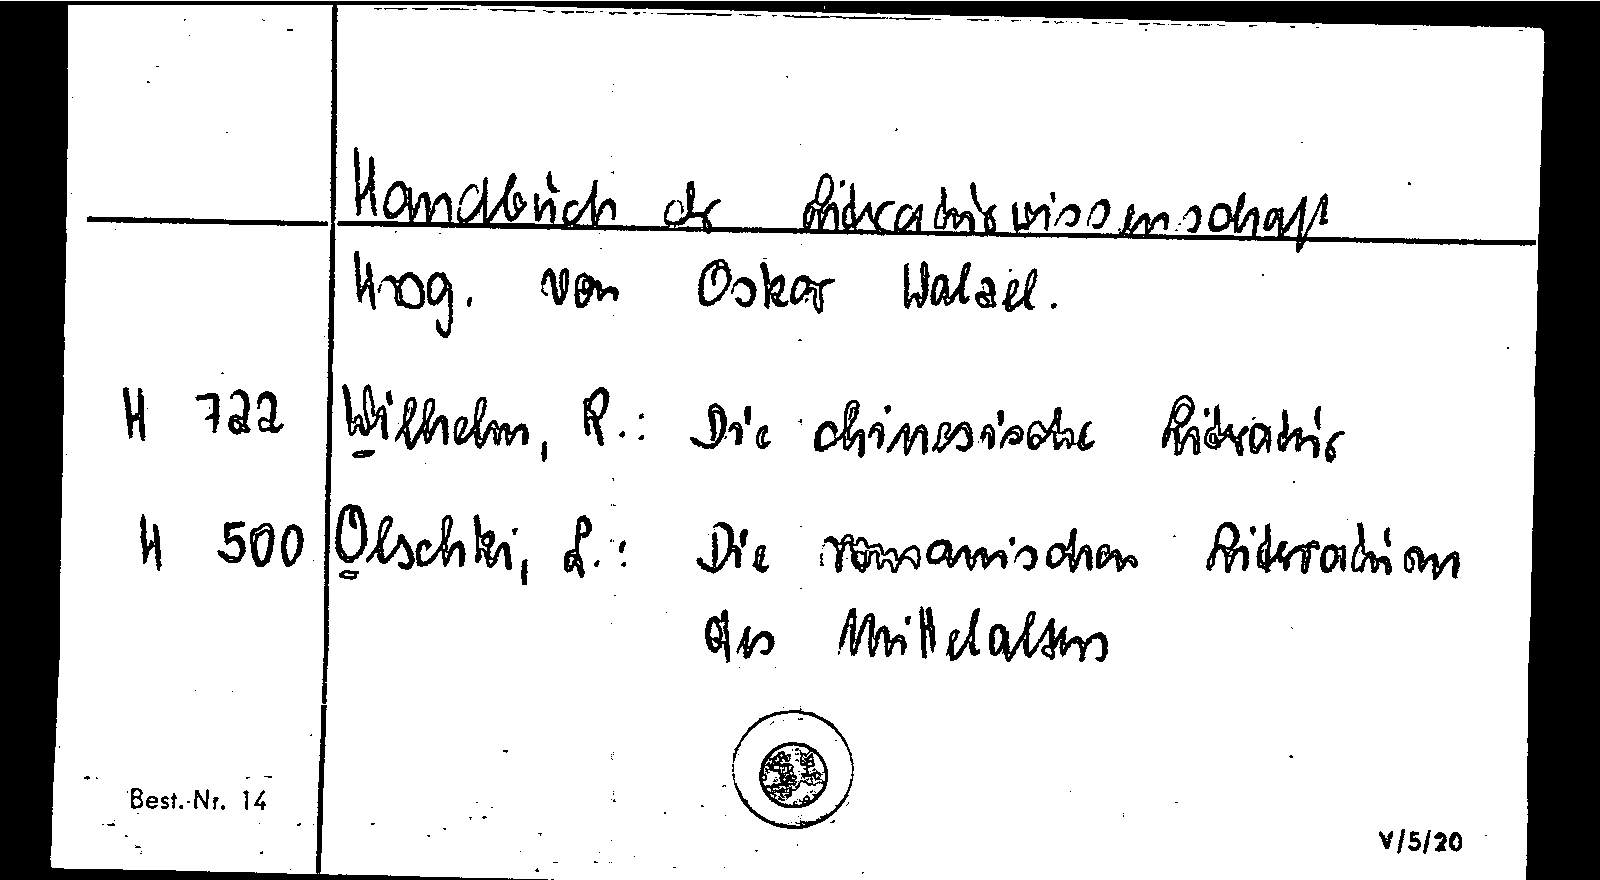 Handbuch der Literaturwissenschaft
Hrsg. von Oskar Walzel.
H 722 Wilhelm, R.: Die chinesische Literatur
H 500 Olschki, L.: Die romanischen Literaturen
des Mittelalters
Best.-Nr. 14
V/5/20